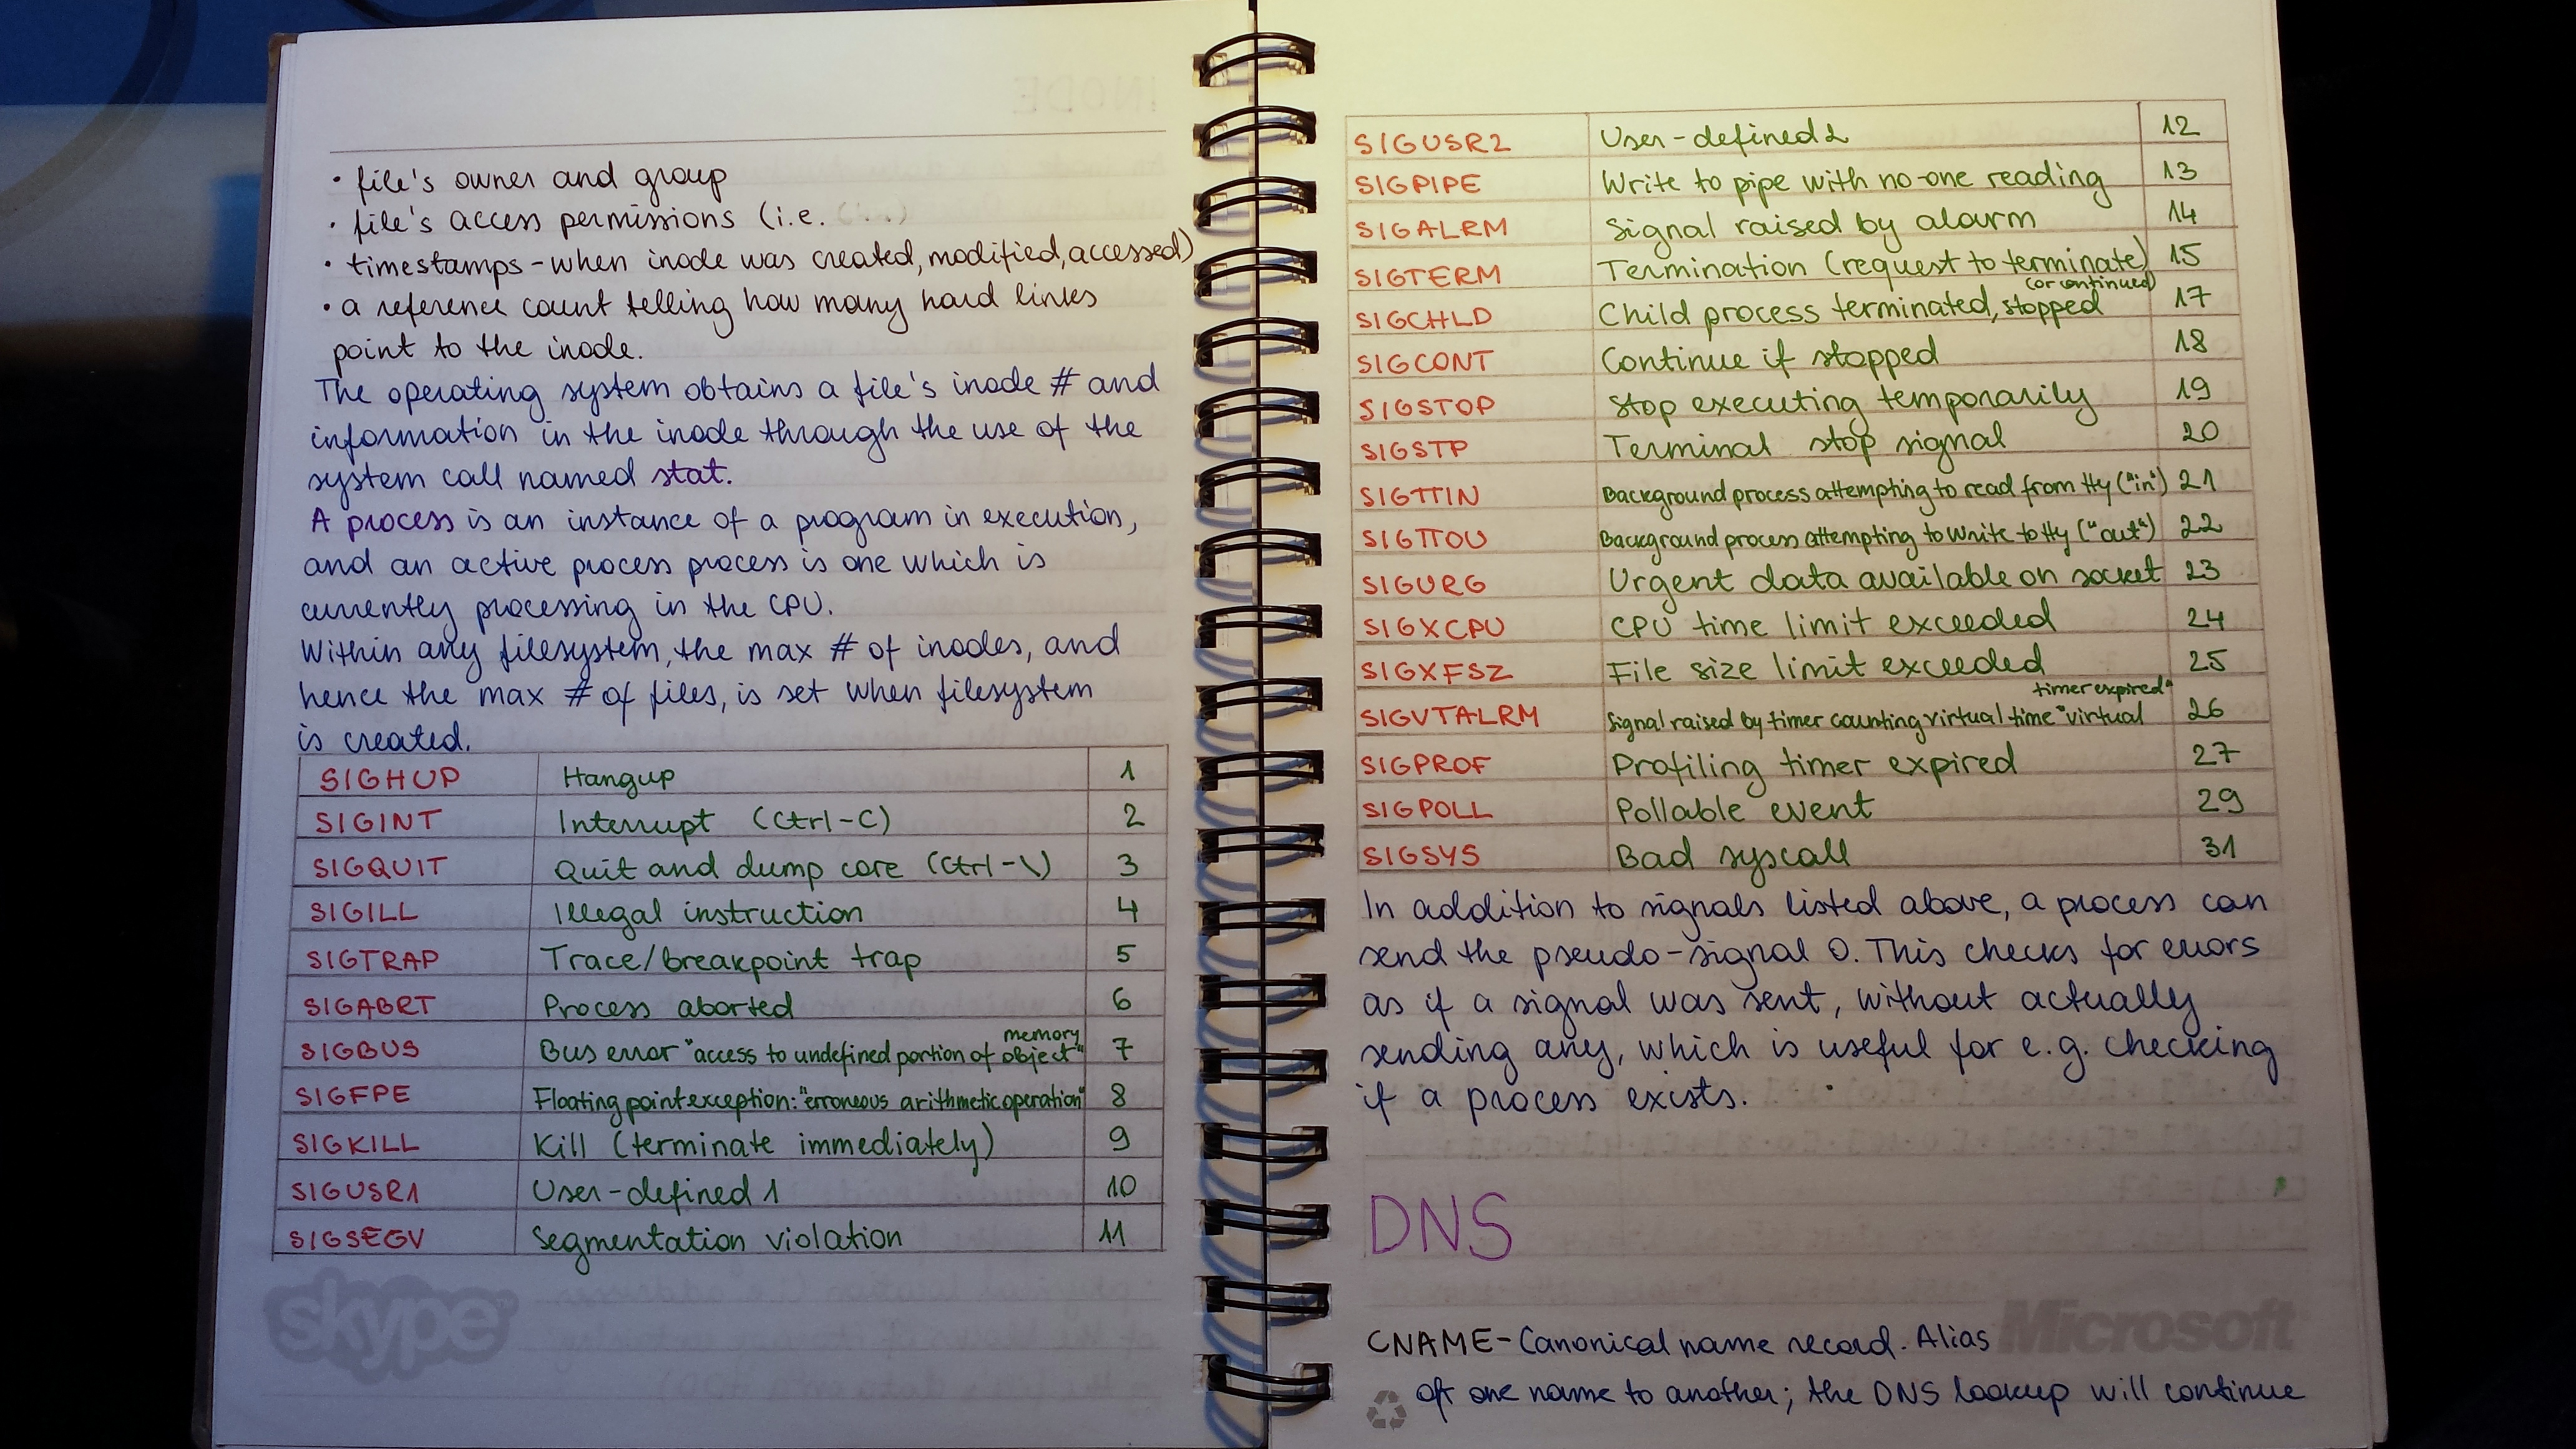 • file's owner and group
• file's access permissions (i.e.
• timestamps - when inode was created, modified, accessed)
• a reference count telling how many hard links
point to the inode.
The operating system obtains a file's inode # and
information in the inode through the use of the
system call named stat.
A process is an instance of a program in execution,
and an active process process is one which is
currently processing in the CPU.
Within any filesystem, the max # of inodes, and
hence the max # of files, is set when filesystem
is created.
SIGHUP Hangup 1
SIGINT Interrupt (Ctrl-C) 2
SIGQUIT Quit and dump core (Ctrl-\) 3
SIGILL Illegal instruction 4
SIGTRAP Trace/breakpoint trap 5
SIGABRT Process aborted 6
SIGBUS Bus error "access to undefined portion of memory object" 7
SIGFPE Floating point exception: "erroneous arithmetic operation" 8
SIGKILL Kill (terminate immediately) 9
SIGUSR1 User-defined 1 10
SIGSEGV Segmentation violation 11
skype
SIGUSR2 User-defined 2 12
SIGPIPE Write to pipe with no-one reading 13
SIGALRM Signal raised by alarm 14
SIGTERM Termination (request to terminate) 15
SIGCHLD Child process terminated, stopped (or continued) 17
SIGCONT Continue if stopped 18
SIGSTOP Stop executing temporarily 19
SIGSTP Terminal stop signal 20
SIGTTIN Background process attempting to read from tty ("in") 21
SIGTTOU Background process attempting to write to tty ("out") 22
SIGURG Urgent data available on socket 23
SIGXCPU CPU time limit exceeded 24
SIGXFSZ File size limit exceeded 25
SIGVTALRM Signal raised by timer counting virtual time "virtual timer expired" 26
SIGPROF Profiling timer expired 27
SIGPOLL Pollable event 29
SIGSYS Bad syscall 31
In addition to signals listed above, a process can
send the pseudo-signal 0. This checks for errors
as if a signal was sent, without actually
sending any, which is useful for e.g. checking
if a process exists.
DNS
Microsoft
CNAME - Canonical name record. Alias
oft one name to another; the DNS lookup will continue